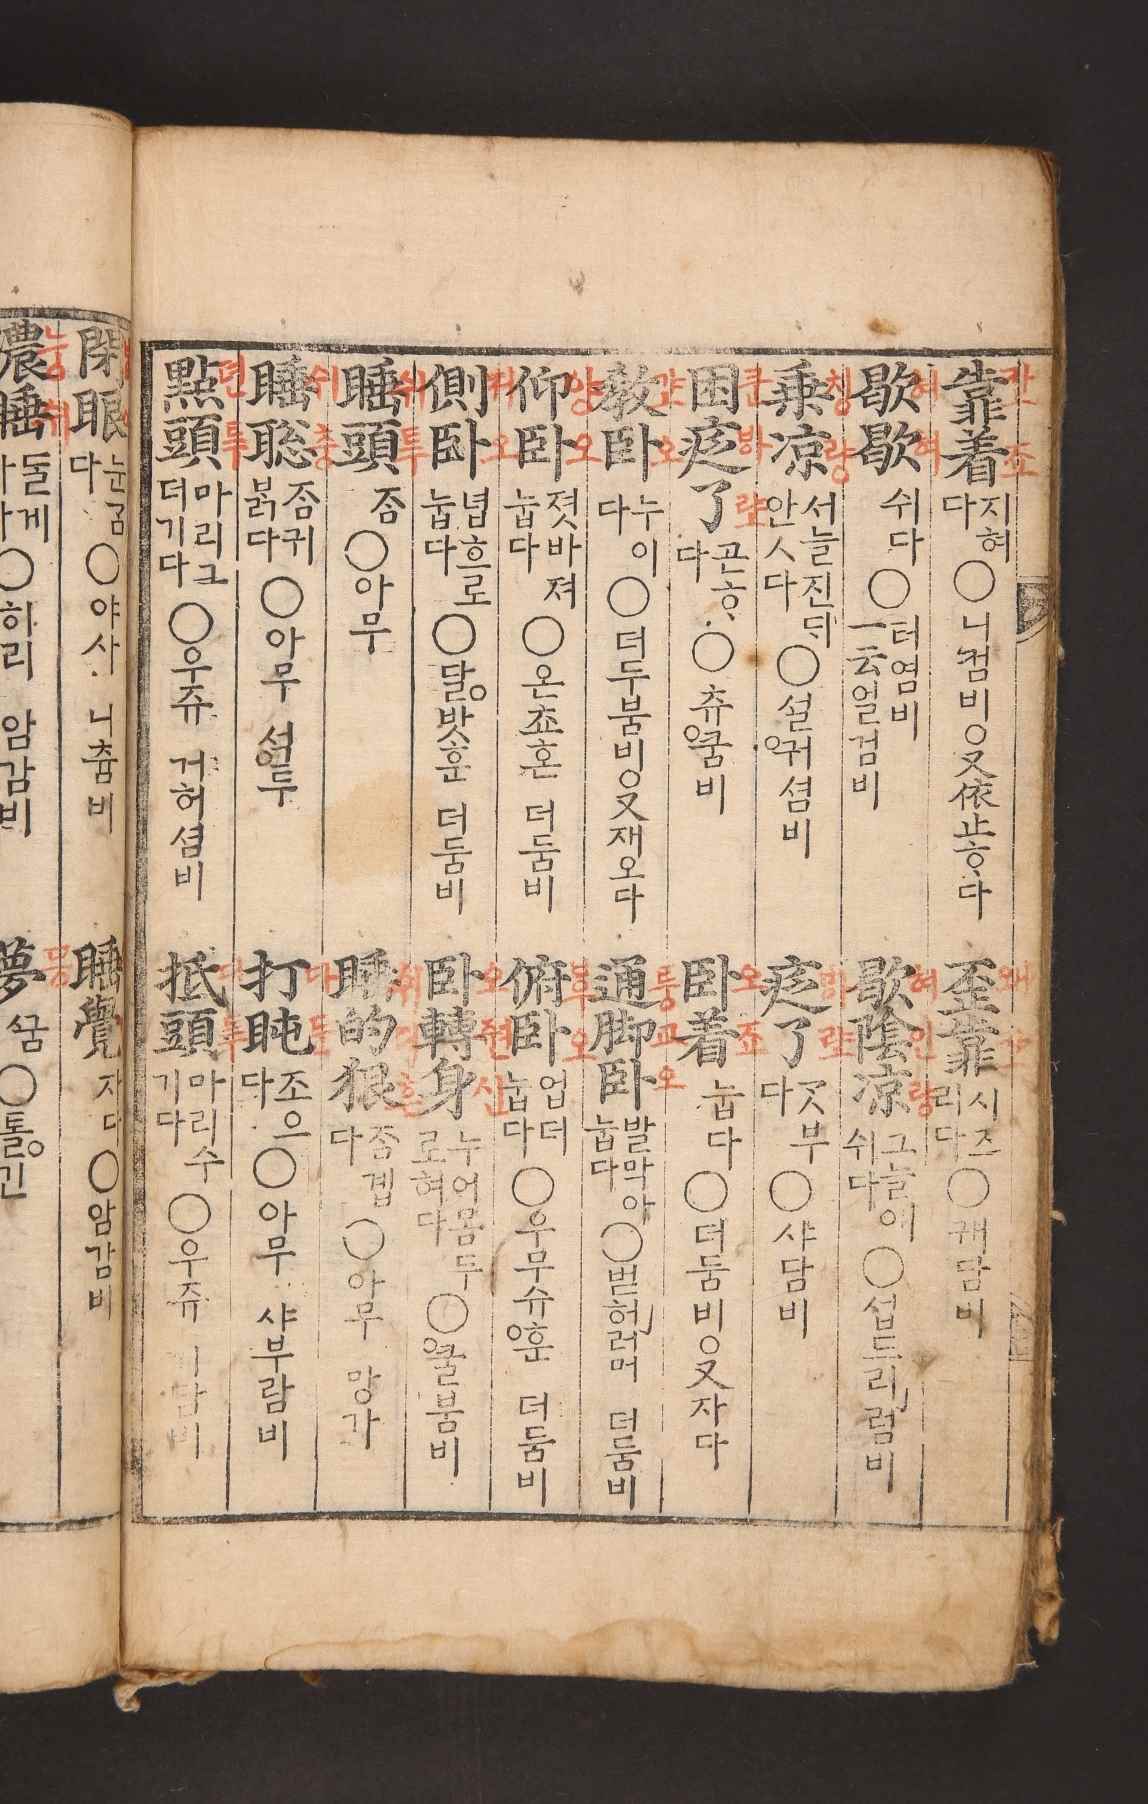 靠着 지혀다 ○니컴비○又依止ᄒᆞ다
歪靠 시즈리다 ○괘담비
歇歇 쉬다 ○터염비 一云얼검비
歇陰凉 그늘에 쉬다 ○섭드리럼비
乗凉 서늘진ᄃᆡ 안ᄉᆞ다 ○설궈셤비
疲了 ᄀᆞᆺ부다 ○샤담비
困疲了 곤ᄒᆞ다 ○츄쿰비
卧着 눕다 ○더둠비○又자다
教卧 누이다 ○더두붐비○又재오다
通脚卧 발막아 눕다 ○벋허러머 더둠비
仰卧 졋바져 눕다 ○온쵸혼 더둠비
俯卧 업더 눕다 ○우무슈훈 더둠비
側卧 녑흐로 눕다 ○달밧훈 더둠비
卧轉身 누어 몸두로혀다 ○쿨붐비
睡頭 ᄌᆞᆷ ○아무
睡的狠 ᄌᆞᆷ 곕다 ○아무 망가
睡聡 ᄌᆞᆷ귀 ᄇᆞᆰ다 ○아무 션두
打盹 조으다 ○아무 샤부람비
點頭 마리 그더기다 ○우쥬 거허셤비
抵頭 마리 수기다 ○우쥬 기담비
閉眼 눈ᄀᆞᆷ다 ○야사 니츔비
睡覺 자다 ○암감비
濃睡 ○하리 암감비
夢 ᄭᅮᆷ ○톨긴